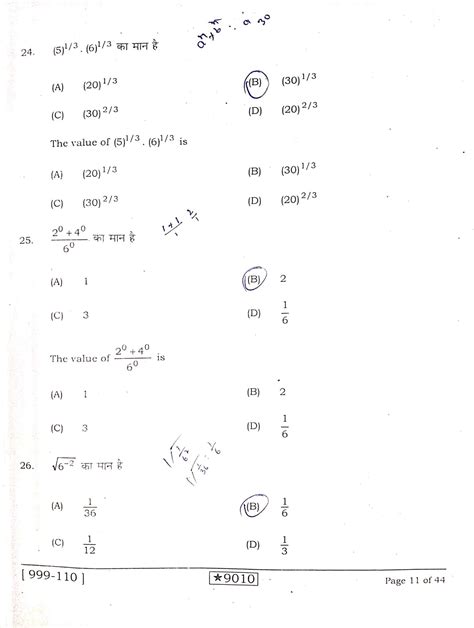 24. (5)^1/3 . (6)^1/3 का मान है
(A) (20)^1/3 (B) (30)^1/3
(C) (30)^2/3 (D) (20)^2/3
The value of (5)^1/3 . (6)^1/3 is
(A) (20)^1/3 (B) (30)^1/3
(C) (30)^2/3 (D) (20)^2/3
1+1/1 2/1
25. 2^0 + 4^0 / 6^0 का मान है
(A) 1 (B) 2
(C) 3 (D) 1/6
The value of 2^0 + 4^0 / 6^0 is
(A) 1 (B) 2
(C) 3 (D) 1/6
26. √6^-2 का मान है
(A) 1/36 (B) 1/6
(C) 1/12 (D) 1/3
[ 999-110 ] ★9010 Page 11 of 44